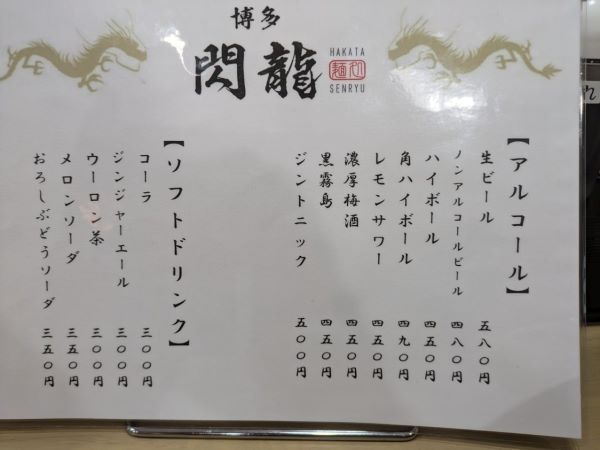 博多
閃龍
HAKATA
麺処
SENRYU
【アルコール】
生ビール 五八〇円
ノンアルコールビール 四八〇円
ハイボール 四五〇円
角ハイボール 四九〇円
レモンサワー 四五〇円
濃厚梅酒 四五〇円
黒霧島 四五〇円
ジントニック 五〇〇円
【ソフトドリンク】
コーラ 三〇〇円
ジンジャーエール 三〇〇円
ウーロン茶 三〇〇円
メロンソーダ 三五〇円
おろしぶどうソーダ 三五〇円